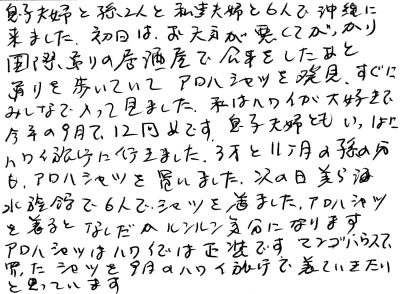 息子夫婦と孫2人と私達夫婦と6人で沖縄に
来ました。初日は、お天気が悪くてがっかり
国際通りの居酒屋で食事をしたあと
通りを歩いていて アロハシャツを発見、すぐに
みんなで入って見ました。私はハワイが大好きで
今年の9月で、12回めです。息子夫婦ともいっしょに
ハワイ旅行に行きました。3才と11ヶ月の孫の分
も、アロハシャツを買いました。次の日美ら海
水族館で6人で、シャツを着ました。アロハシャツ
を着ると なんだかルンルン気分になります
アロハシャツはハワイでは正装です マンゴハウスで、
買ったシャツを9月のハワイ旅行で着ていきたい
と思っています